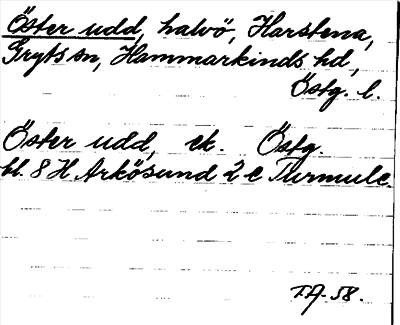 Öster udd, halvö, Harstena,
Gryts sn, Hammarkinds hd,
Östg. l.
Öster udd, ek. Östg.
bl. 8 H Arkösund 2 c Turmulc.
T.A-58.